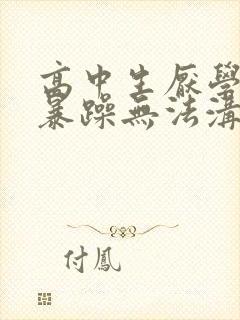 高中生厭學
暴躁無法溝
付鳳